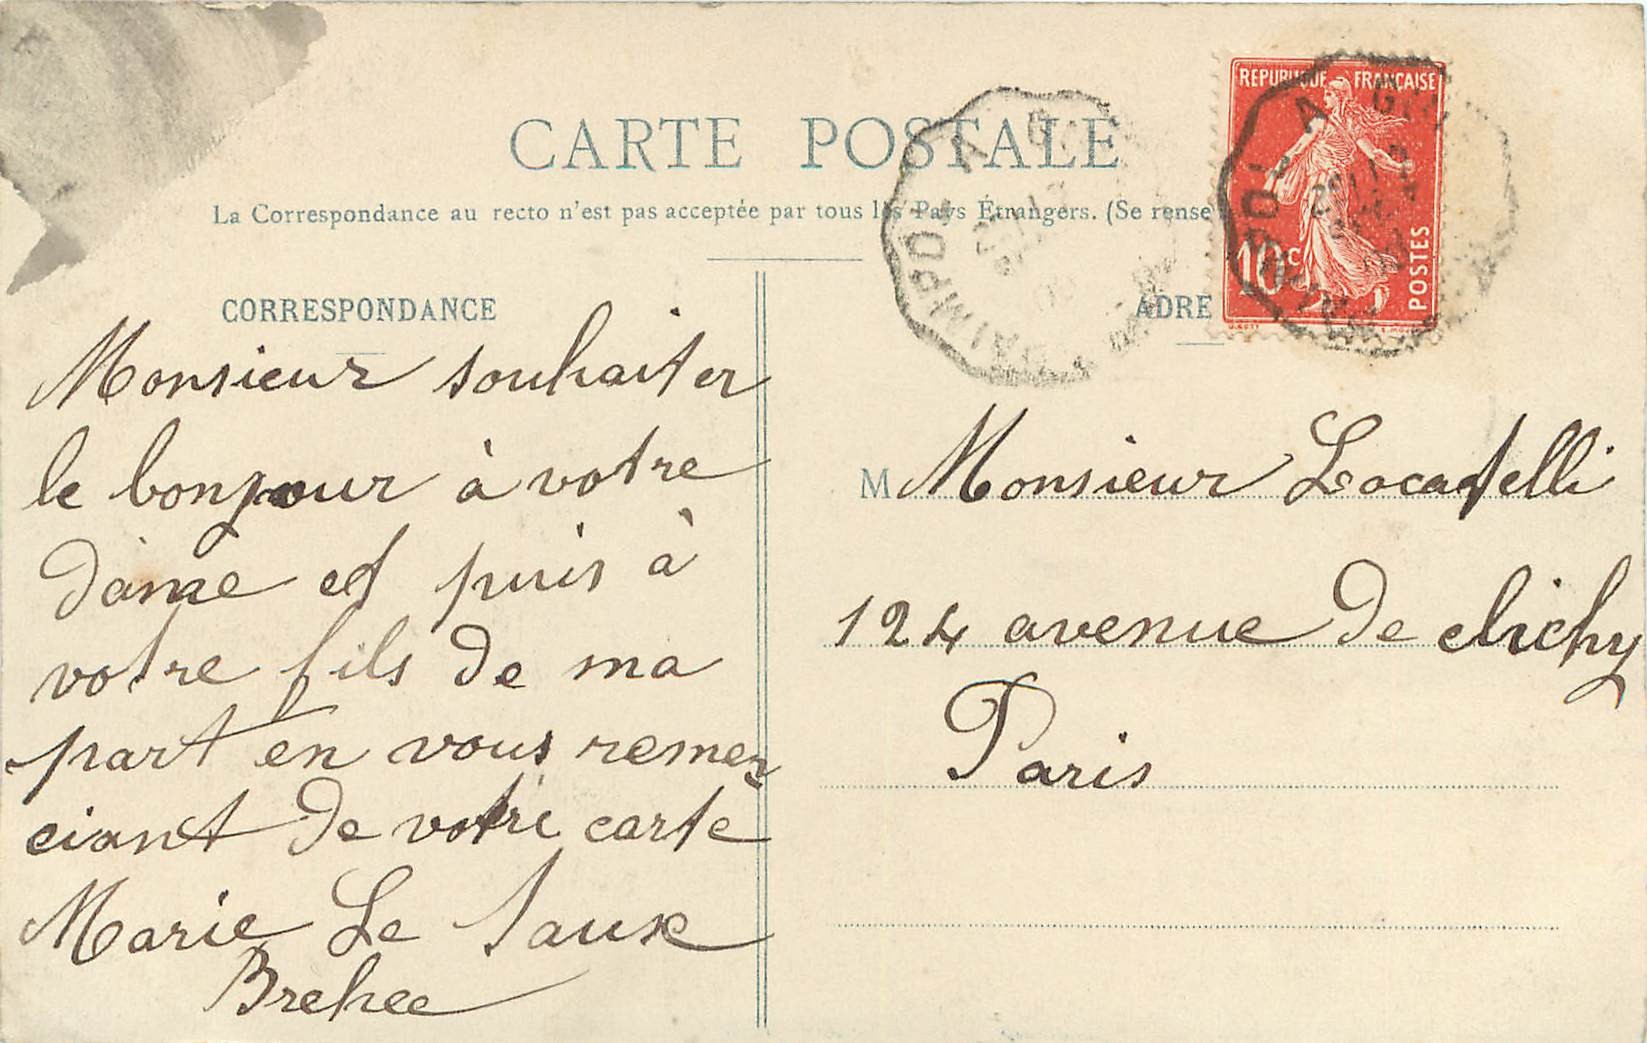 CARTE POSTALE
La Correspondance au recto n'est pas acceptée par tous les Pays Étrangers. (Se rense
CORRESPONDANCE
ADRE
REPUBLIQUE FRANÇAISE
10 c
POSTES
PAIMPOL A
PAIMPOL A
Monsieur souhaiter
le bonjour à votre
dame et puis à
votre fils de ma
part en vous remer
ciant de votre carte
Marie Le Saux
Brehec
M Monsieur Locatelli
124 avenue de clichy
Paris